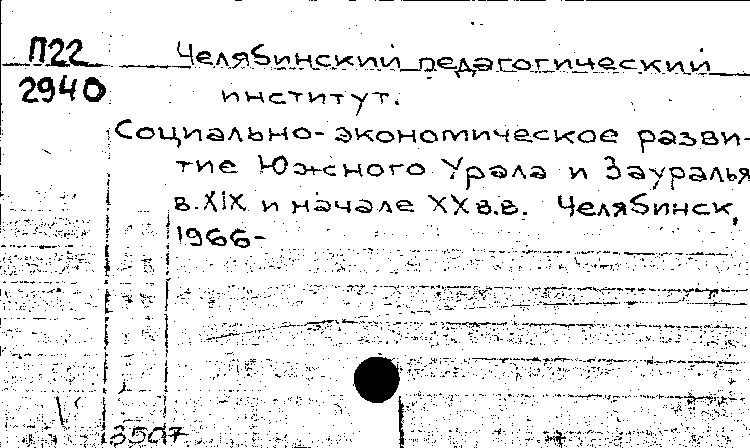 П22 Челябинский педагогический
2940 институт.
Социально-экономическое разви-
тие Южного Урала и Зауралья
в. XIX и начале XX в.в. Челябинск,
1966-
3507